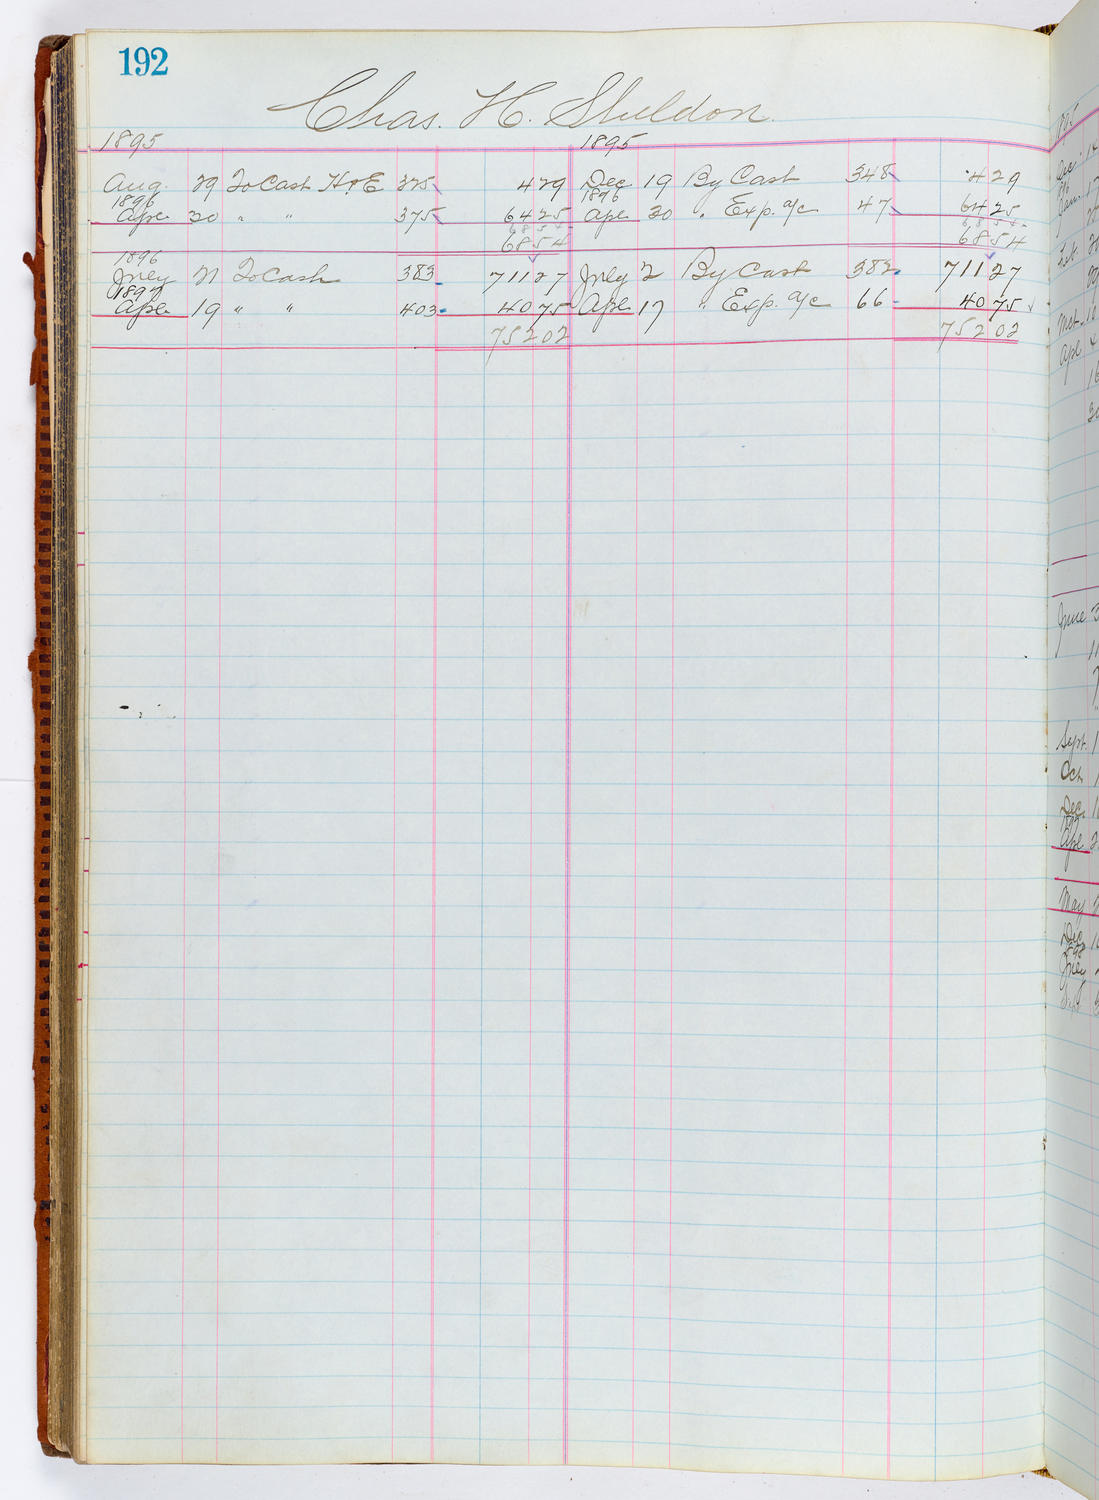 192
Chas. H. Sheldon
1895 1895
Aug. 29 To Cash H&E 325 4 29 Dec 19 By Cash 348 4 29
1896 1896
Apr 20 " " 375 64 25 Apr 20 " Exp. a/c 47 64 25
68 54 68 54
68 54 68 54
1896
July 21 To Cash 383 711 27 July 2 By Cash 382 711 27
1897
Apr 19 " " 403 40 75 Apr 17 " Exp. a/c 66 40 75
752 02 752 02
Dec 14
Jan
Feb
Apl
June
Sept.
Oct
Dec
Apl
May
Dec
July